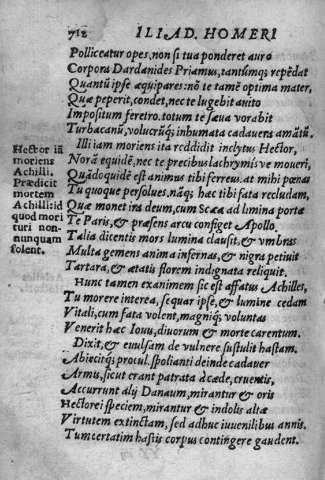 712 ILIAD. HOMERI
Polliceatur opes, non si tua ponderet auro
Corpora Dardanides Priamus, tantúmq; repẽdat
Quantũ ipse æquipares: nõ te tamẽ optima mater,
Quæ peperit, condet, nec te lugebit auito
Impositum feretro. totum te sæua vorabit
Turba canũ, volucrũq; inhumata cadauera amãtũ.
Illi iam moriens ita reddidit inclytus Hector,
Norã equidẽ, nec te precibus lachrymis ve moueri,
Quãdoquidẽ est animus tibi ferreus. at mihi pœnas
Tu quoque persolues. nãq; hæc tibi fata recludam,
Quæ monet ira deum, cum Scæa ad limina portæ
Te Paris, & præsens arcu configet Apollo.
Talia dicentis mors lumina clausit, & vmbras
Multa gemens anima infernas, & nigra petiuit
Tartara, & ætatis florem indignata reliquit.
Hunc tamen exanimem sic est affatus Achilles,
Tu morere interea, sequar ipse, & lumine cedam
Vitali, cum fata volent, magniq; voluntas
Venerit hæc Iouis, diuorum & morte carentum.
Dixit, & euulsam de vulnere sustulit hastam.
Abiecitq; procul. spolianti deinde cadauer
Armis, sicut erant patrata à cæde, cruentis,
Accurrunt alij Danaum, mirantur & oris
Hectorei speciem, mirantur & indolis altæ
Virtutem extinctam, sed adhuc iuuenilibus annis.
Tum certatim hastis corpus contingere gaudent.
Hector iã
moriens
Achilli.
Prædicit
mortem
Achilli: id
quod mori
turi non-
nunquam
solent.